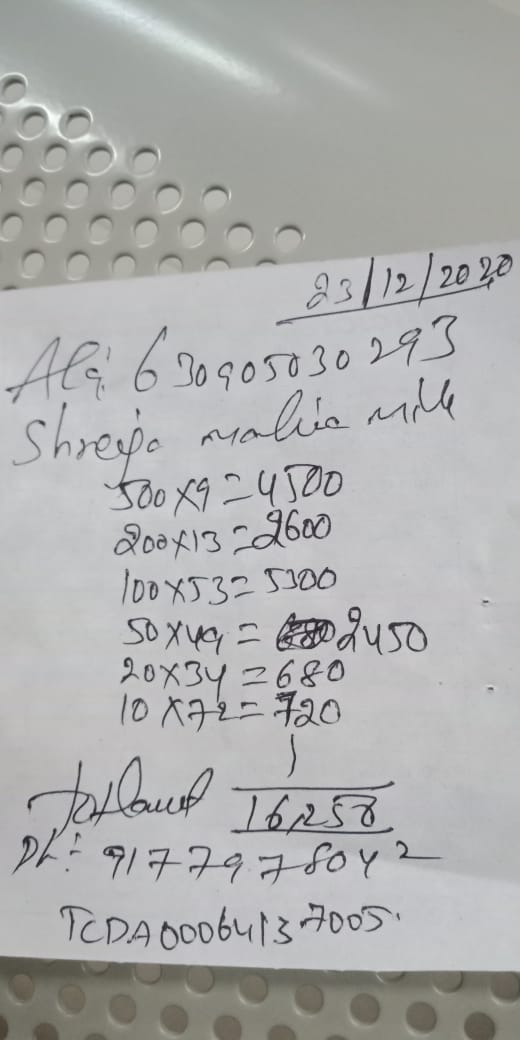 23/12/2020
630905030293
Shreya milk
500×9=4500
200×13=2600
100×53=5300
50×49=2450
20×34=680
10×72=720
1
16,25
9177978042
TCDA00064137005.